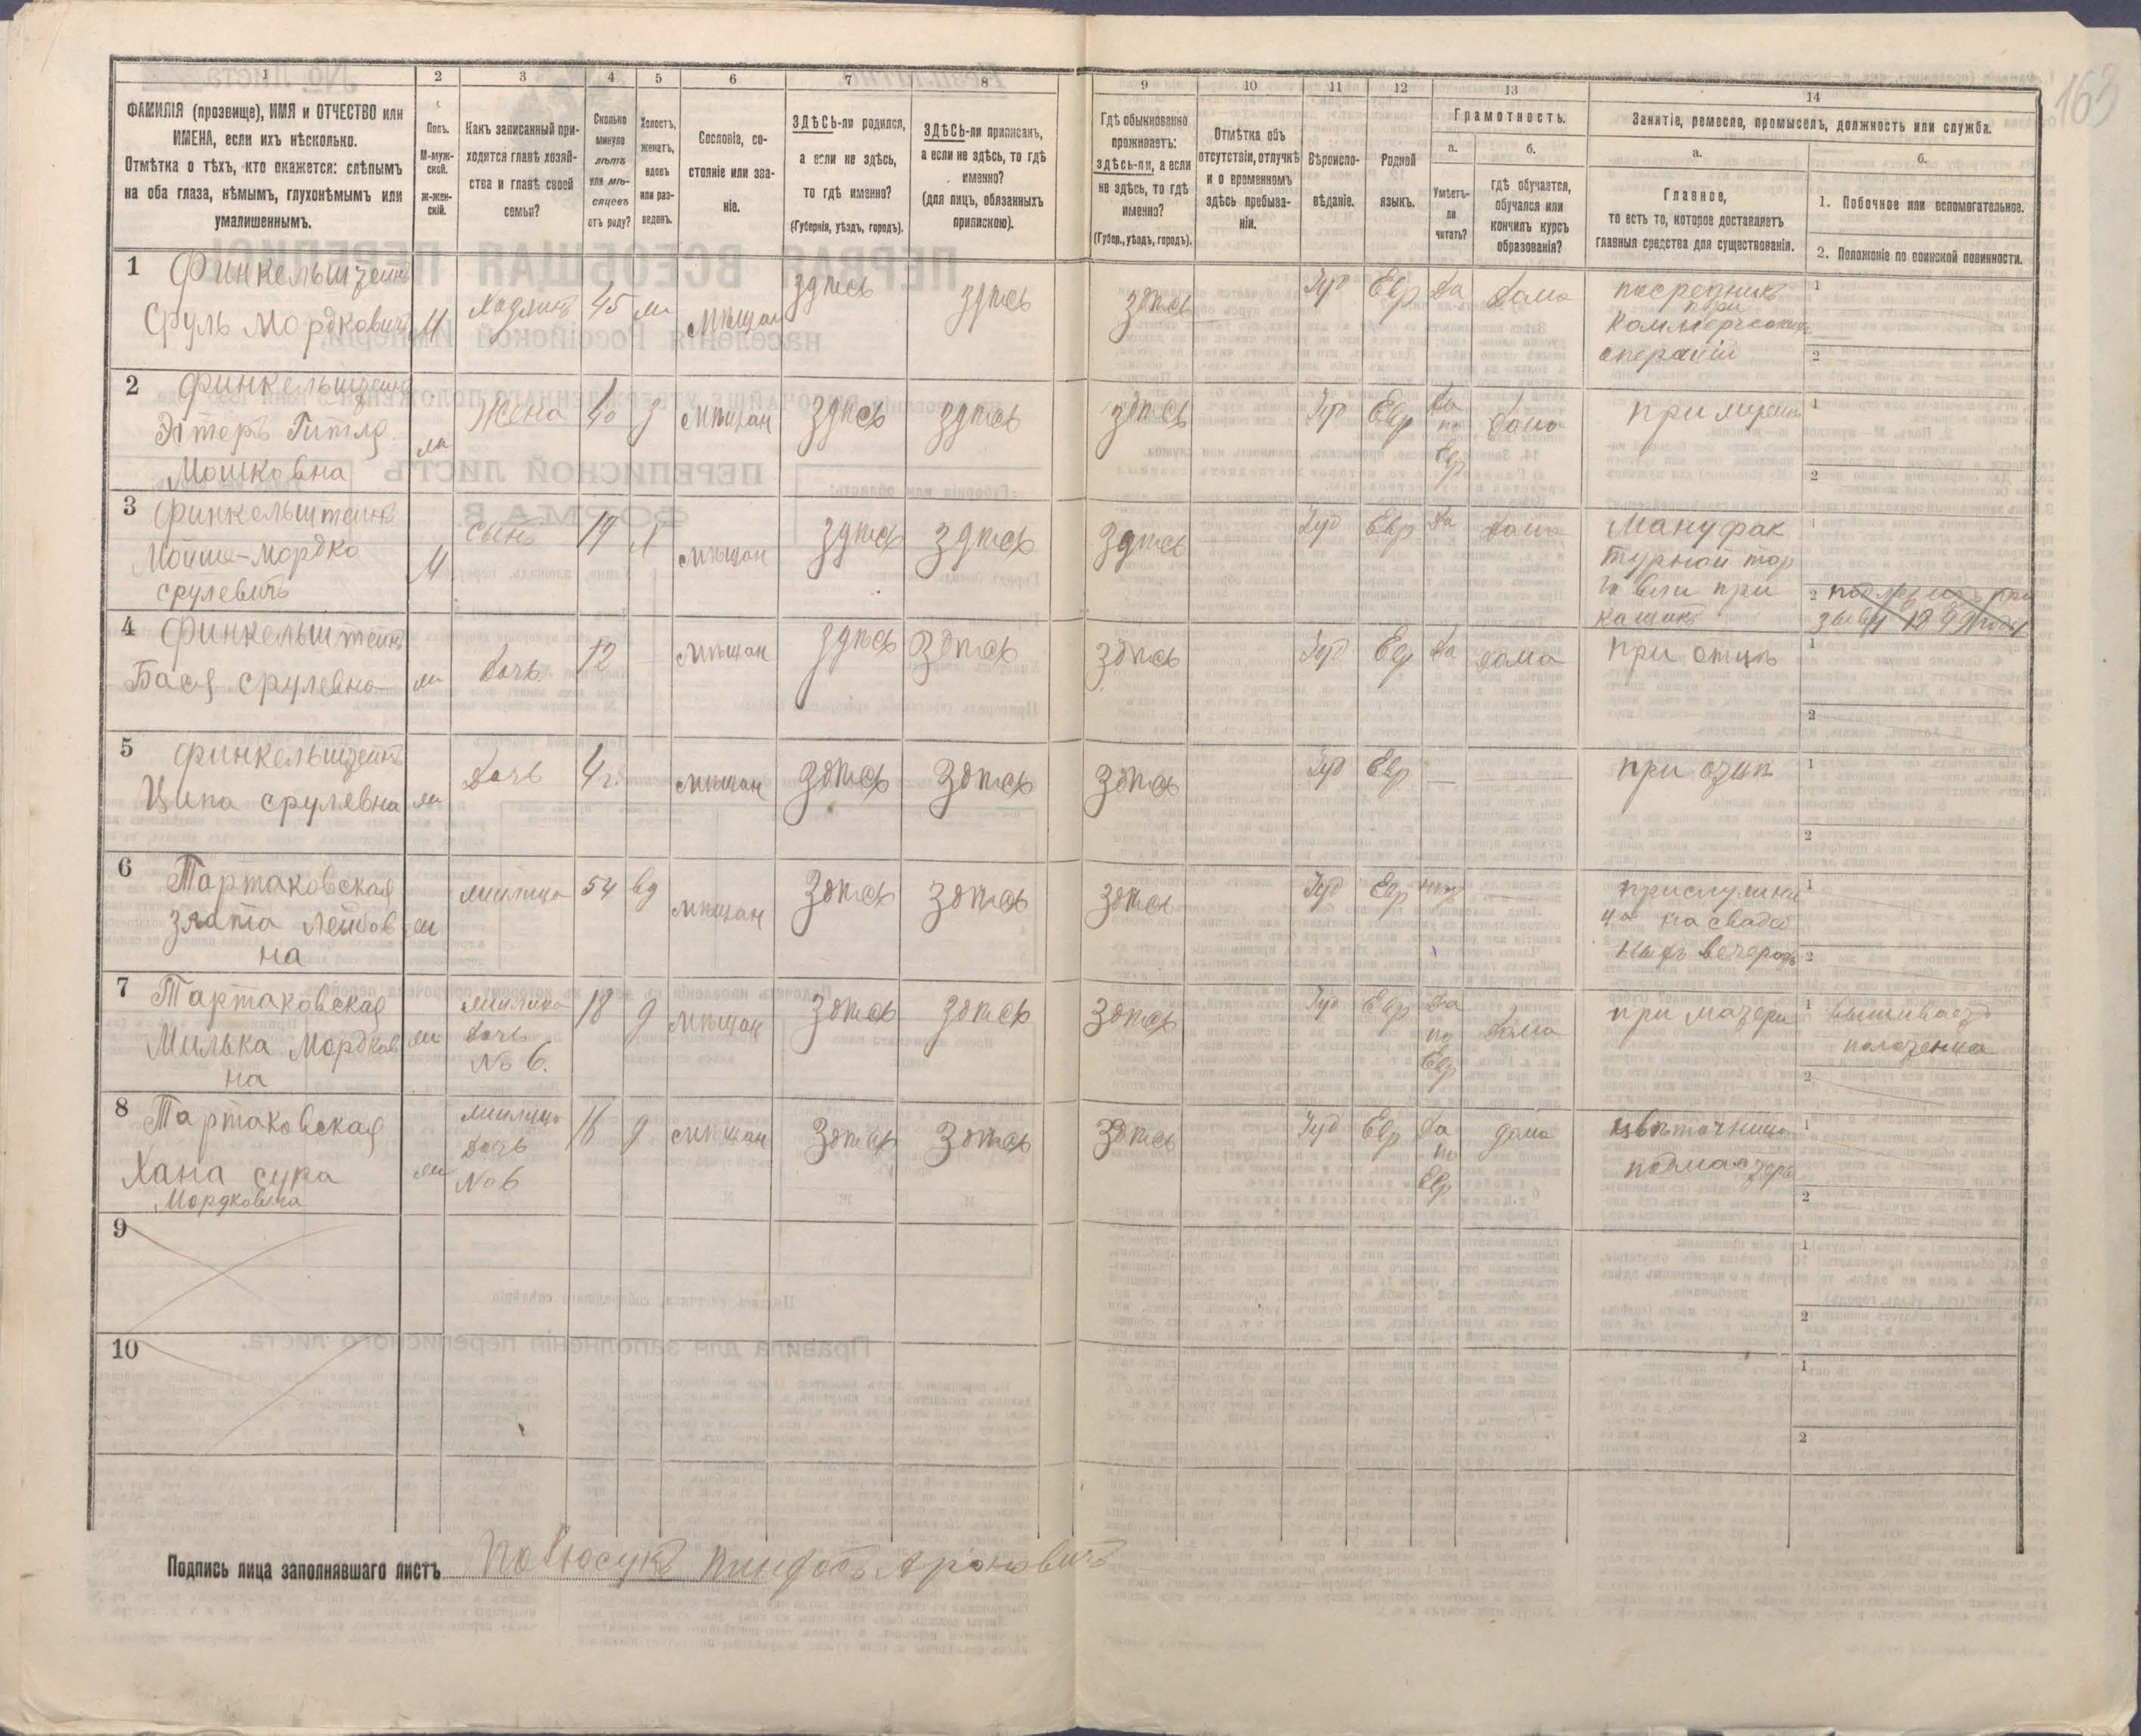 163
1 2 3 4 5 6 7 8 9 10 11 12 13 14
ФАМИЛІЯ (прозвище), ИМЯ и ОТЧЕСТВО или
ИМЕНА, если ихъ нѣсколько.
Отмѣтка о тѣхъ, кто окажется: слѣпымъ
на оба глаза, нѣмымъ, глухонѣмымъ или
умалишеннымъ.
Полъ.
М-муж-
ской.
ж-жен-
скій.
Какъ записанный при-
ходится главѣ хозяй-
ства и главѣ своей
семьи?
Сколько
минуло
лѣтъ
или мѣ-
сяцевъ
отъ роду?
Холостъ,
женатъ,
вдовъ
или раз-
веденъ.
Сословіе, со-
стояніе или зва-
ніе.
ЗДѢСЬ-ли родился,
а если не здѣсь,
то гдѣ именно?
(Губернія, уѣздъ, городъ).
ЗДѢСЬ-ли приписанъ,
а если не здѣсь, то гдѣ
именно?
(для лицъ, обязанныхъ
припискою).
Гдѣ обыкновенно
проживаетъ:
здѣсь-ли, а если
не здѣсь, то гдѣ
именно?
(Губер., уѣздъ, городъ).
Отмѣтка объ
отсутствіи, отлучкѣ
и о временномъ
здѣсь пребыва-
ніи.
Вѣроиспо-
вѣданіе.
Родной
языкъ.
Грамотность.
а.
Умѣетъ-
ли
читать?
б.
гдѣ обучается,
обучался или
кончилъ курсъ
образованія?
Занятіе, ремесло, промыселъ, должность или служба.
а.
Главное,
то есть то, которое доставляетъ
главныя средства для существованія.
б.
1. Побочное или вспомогательное.
2. Положеніе по воинской повинности.
1 Финкельштейнъ
Сруль Мордковичъ
М
Хозяинъ
45
ж
мѣщан
здѣсь
здѣсь
здѣсь
Іуд
Евр
Да
Дома
посредникъ
при
Коммерческихъ
операціи
1
2
2 Финкельштейнъ
Эстеръ Гитля
Мошковна
ж
Жена
40
з
мѣщан
здѣсь
здѣсь
здѣсь
Іуд
Евр
Да
по
Евр
Дома
при мужѣ
1
2
3 Финкельштейнъ
Мойше-Мордко
срулевичъ
М
сынъ
19
Х
мѣщан
здѣсь
здѣсь
здѣсь
Іуд
Евр
Да
Дома
Мануфак
турной тор
го вли при
кащикъ
1
2
4 Финкельштейнъ
Бася срулевна
ж
Дочь
12
мѣщан
здѣсь
здѣсь
здѣсь
Іуд
Евр
Да
дома
при отцѣ
1
2
5 Финкельштейнъ
Ципа срулевна
ж
Дочь
4 г.
мѣщан
здѣсь
здѣсь
здѣсь
Іуд
Евр
при отцѣ
1
2
6 Тартаковская
злата Лейбов
на
ж
жилица
54
вд
мѣщан
здѣсь
здѣсь
здѣсь
Іуд
Евр
нѣт
прислужни
ца на свадеб
ныхъ вечерахъ
1
2
7 Тартаковская
Милька Мордков
на
ж
жилица
Дочь
№ 6.
18
д
мѣщан
здѣсь
здѣсь
здѣсь
Іуд
Евр
Да
по
Евр
Дома
при матери
1 вышивает
полотенца
2
8 Тартаковская
Хана сура
Мордковна
ж
жилица
Дочь
№ 6
16
д
мѣщан
здѣсь
здѣсь
здѣсь
Іуд
Евр
Да
по
Евр
дома
цвѣточница
подмастерье
1
2
9
1
2
10
1
2
Подпись лица заполнявшаго листъ Ароновичъ